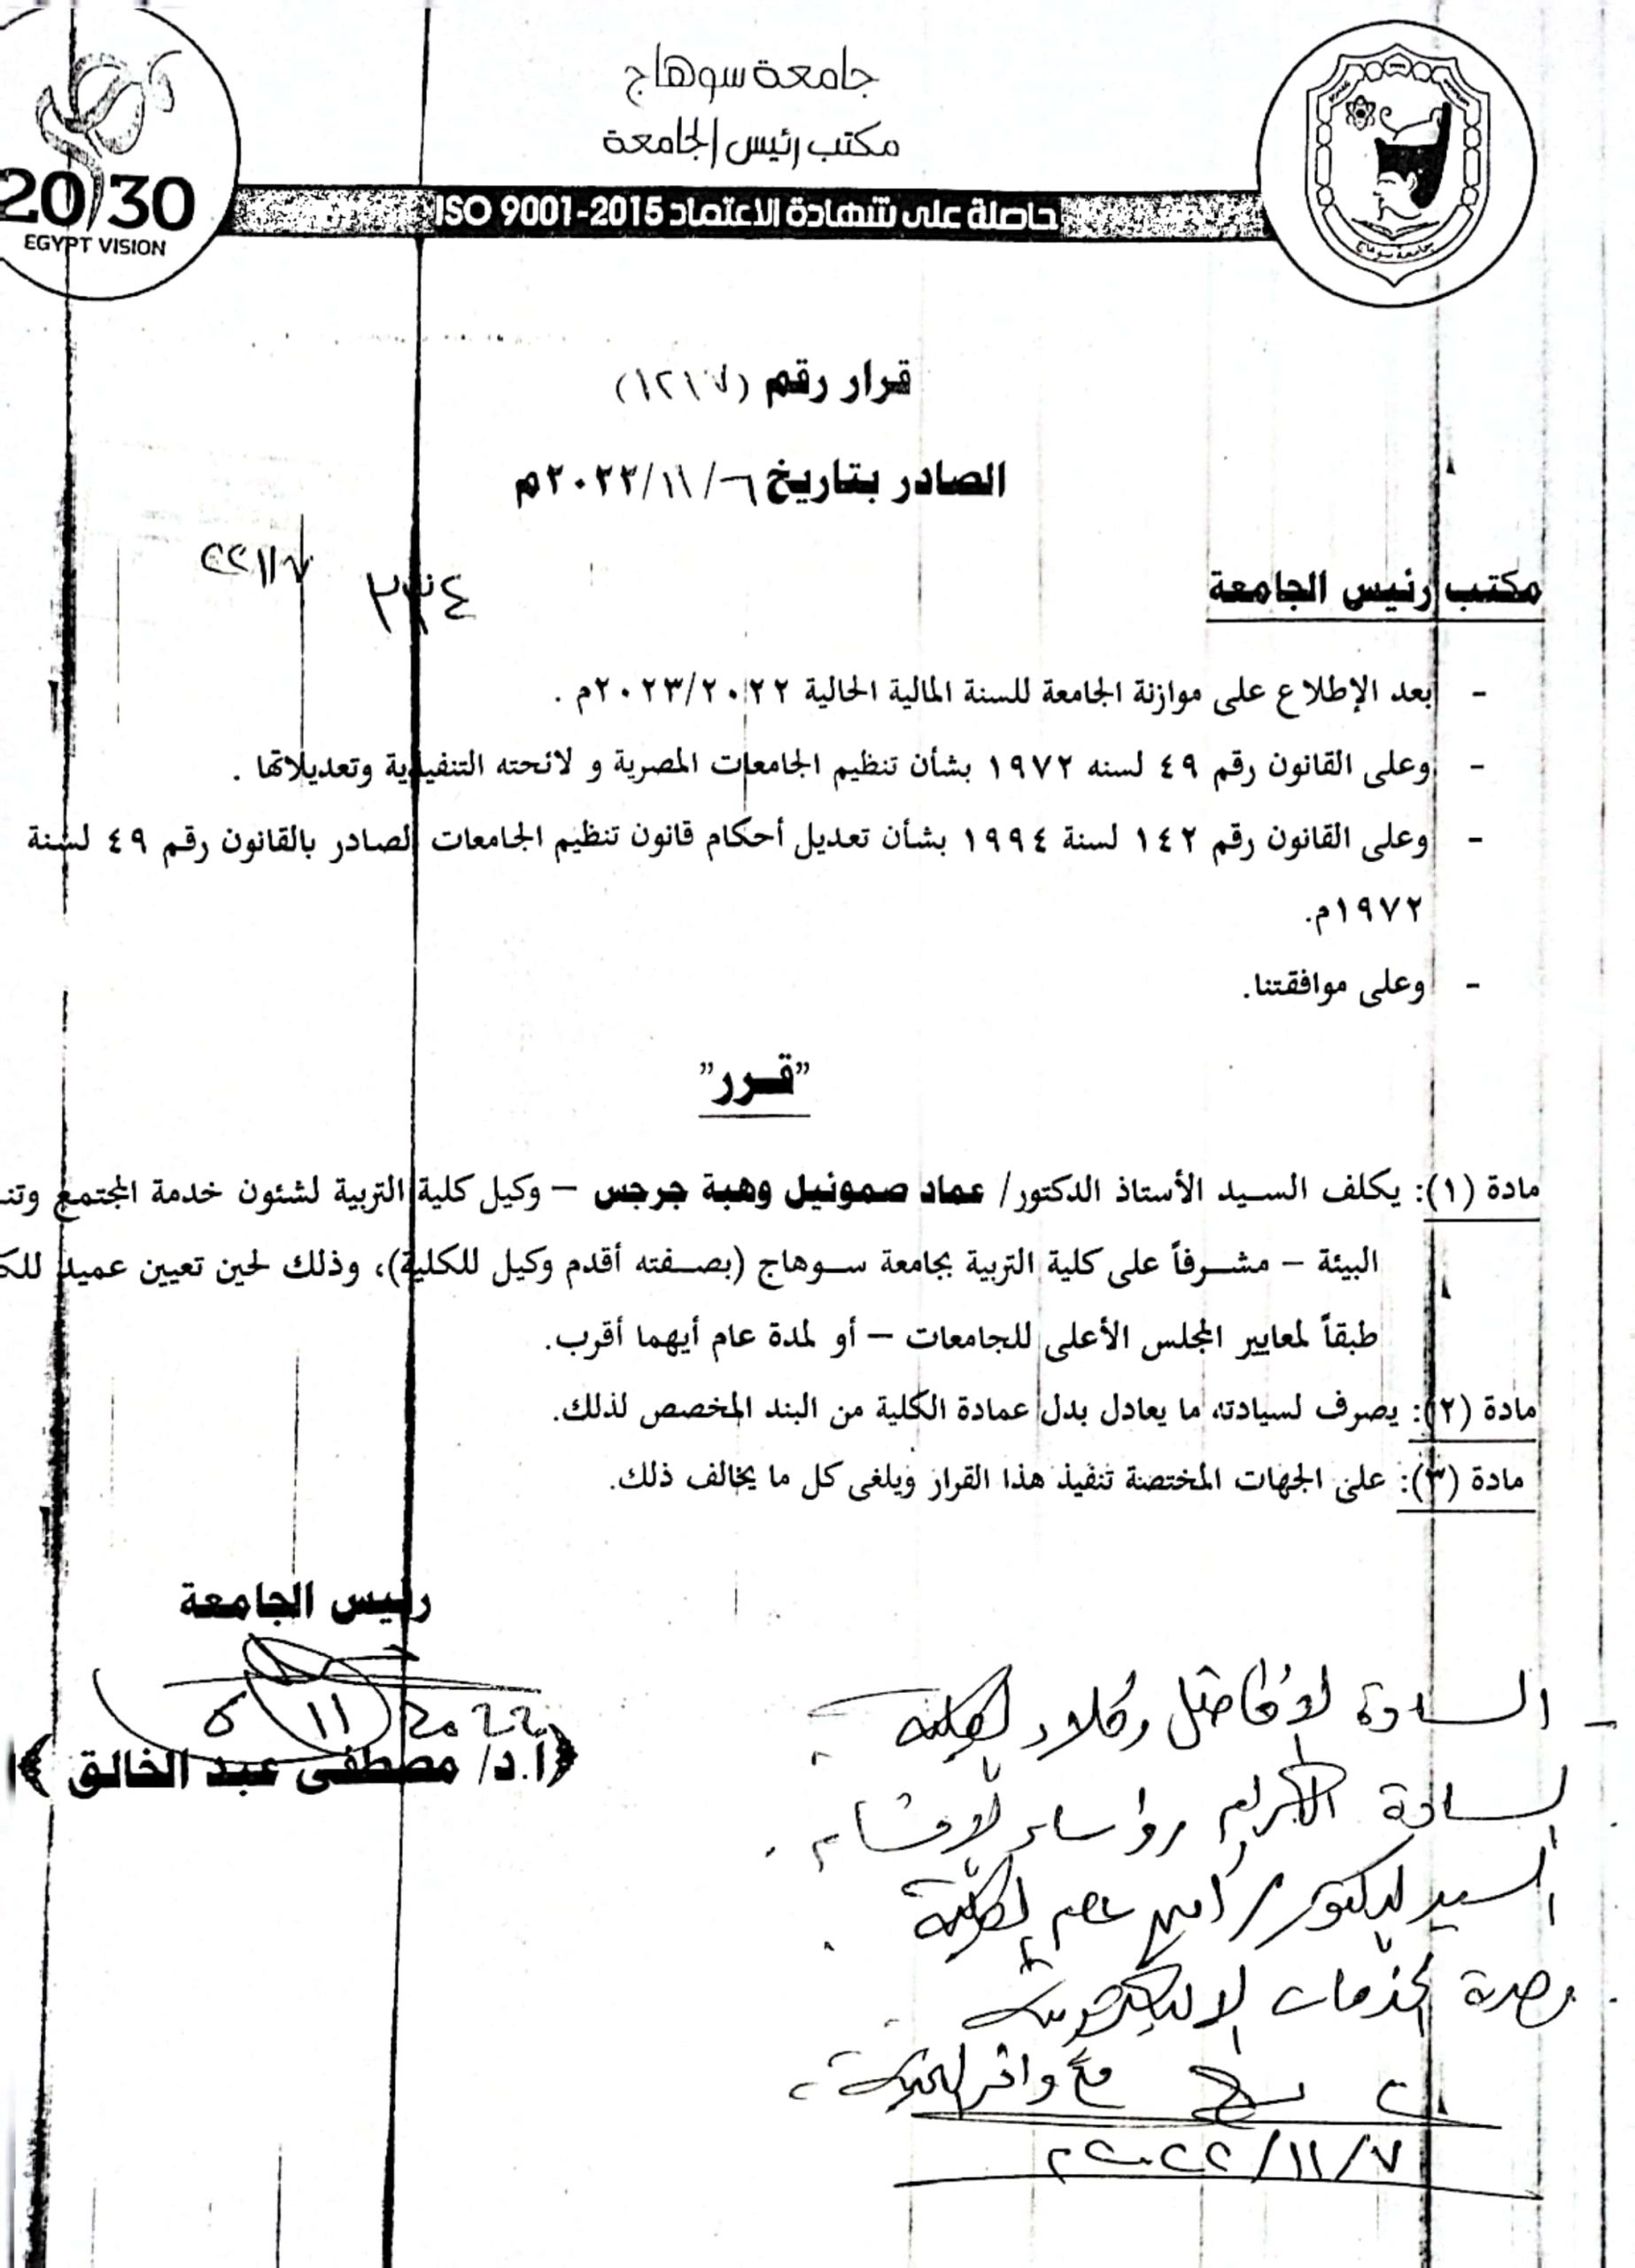 جامعة سوهاج
مكتب رئيس الجامعة
حاصلة على شهادة الاعتماد ISO 9001-2015
2030
EGYPT VISION
جامعة سوهاج
قرار رقم (١٢١٧)
الصادر بتاريخ ٦/١١/٢٠٢٢م
٢٣٤
٢٢/١١/٧
مكتب رئيس الجامعة
- بعد الإطلاع على موازنة الجامعة للسنة المالية الحالية ٢٠٢٣/٢٠٢٢م .
- وعلى القانون رقم ٤٩ لسنه ١٩٧٢ بشأن تنظيم الجامعات المصرية و لائحته التنفيذية وتعديلاتها .
- وعلى القانون رقم ١٤٢ لسنة ١٩٩٤ بشأن تعديل أحكام قانون تنظيم الجامعات الصادر بالقانون رقم ٤٩ لسنة
١٩٧٢م.
- وعلى موافقتنا.
"قـرر"
مادة (١): يكلف السيد الأستاذ الدكتور/ عماد صموئيل وهبة جرجس – وكيل كلية التربية لشئون خدمة المجتمع وتنـ
البيئة – مشرفاً على كلية التربية بجامعة سوهاج (بصفته أقدم وكيل للكلية)، وذلك لحين تعيين عميد للك
طبقاً لمعايير المجلس الأعلى للجامعات – أو لمدة عام أيهما أقرب.
مادة (٢): يصرف لسيادته ما يعادل بدل عمادة الكلية من البند المخصص لذلك.
مادة (٣): على الجهات المختصة تنفيذ هذا القرار ويلغى كل ما يخالف ذلك.
رئيس الجامعة
6 11 2022
﴿ا.د/ مصطفى عبد الخالق﴾
- السادة الأفاضل وكلاء الكلية .
. السادة الكرام رؤساء الأقسام .
السيد الدكتور / أمين عام الكلية .
. وحدة الخدمات الإلكترونية .
مع وافر التحية ،
٢٠٢٢/١١/٧